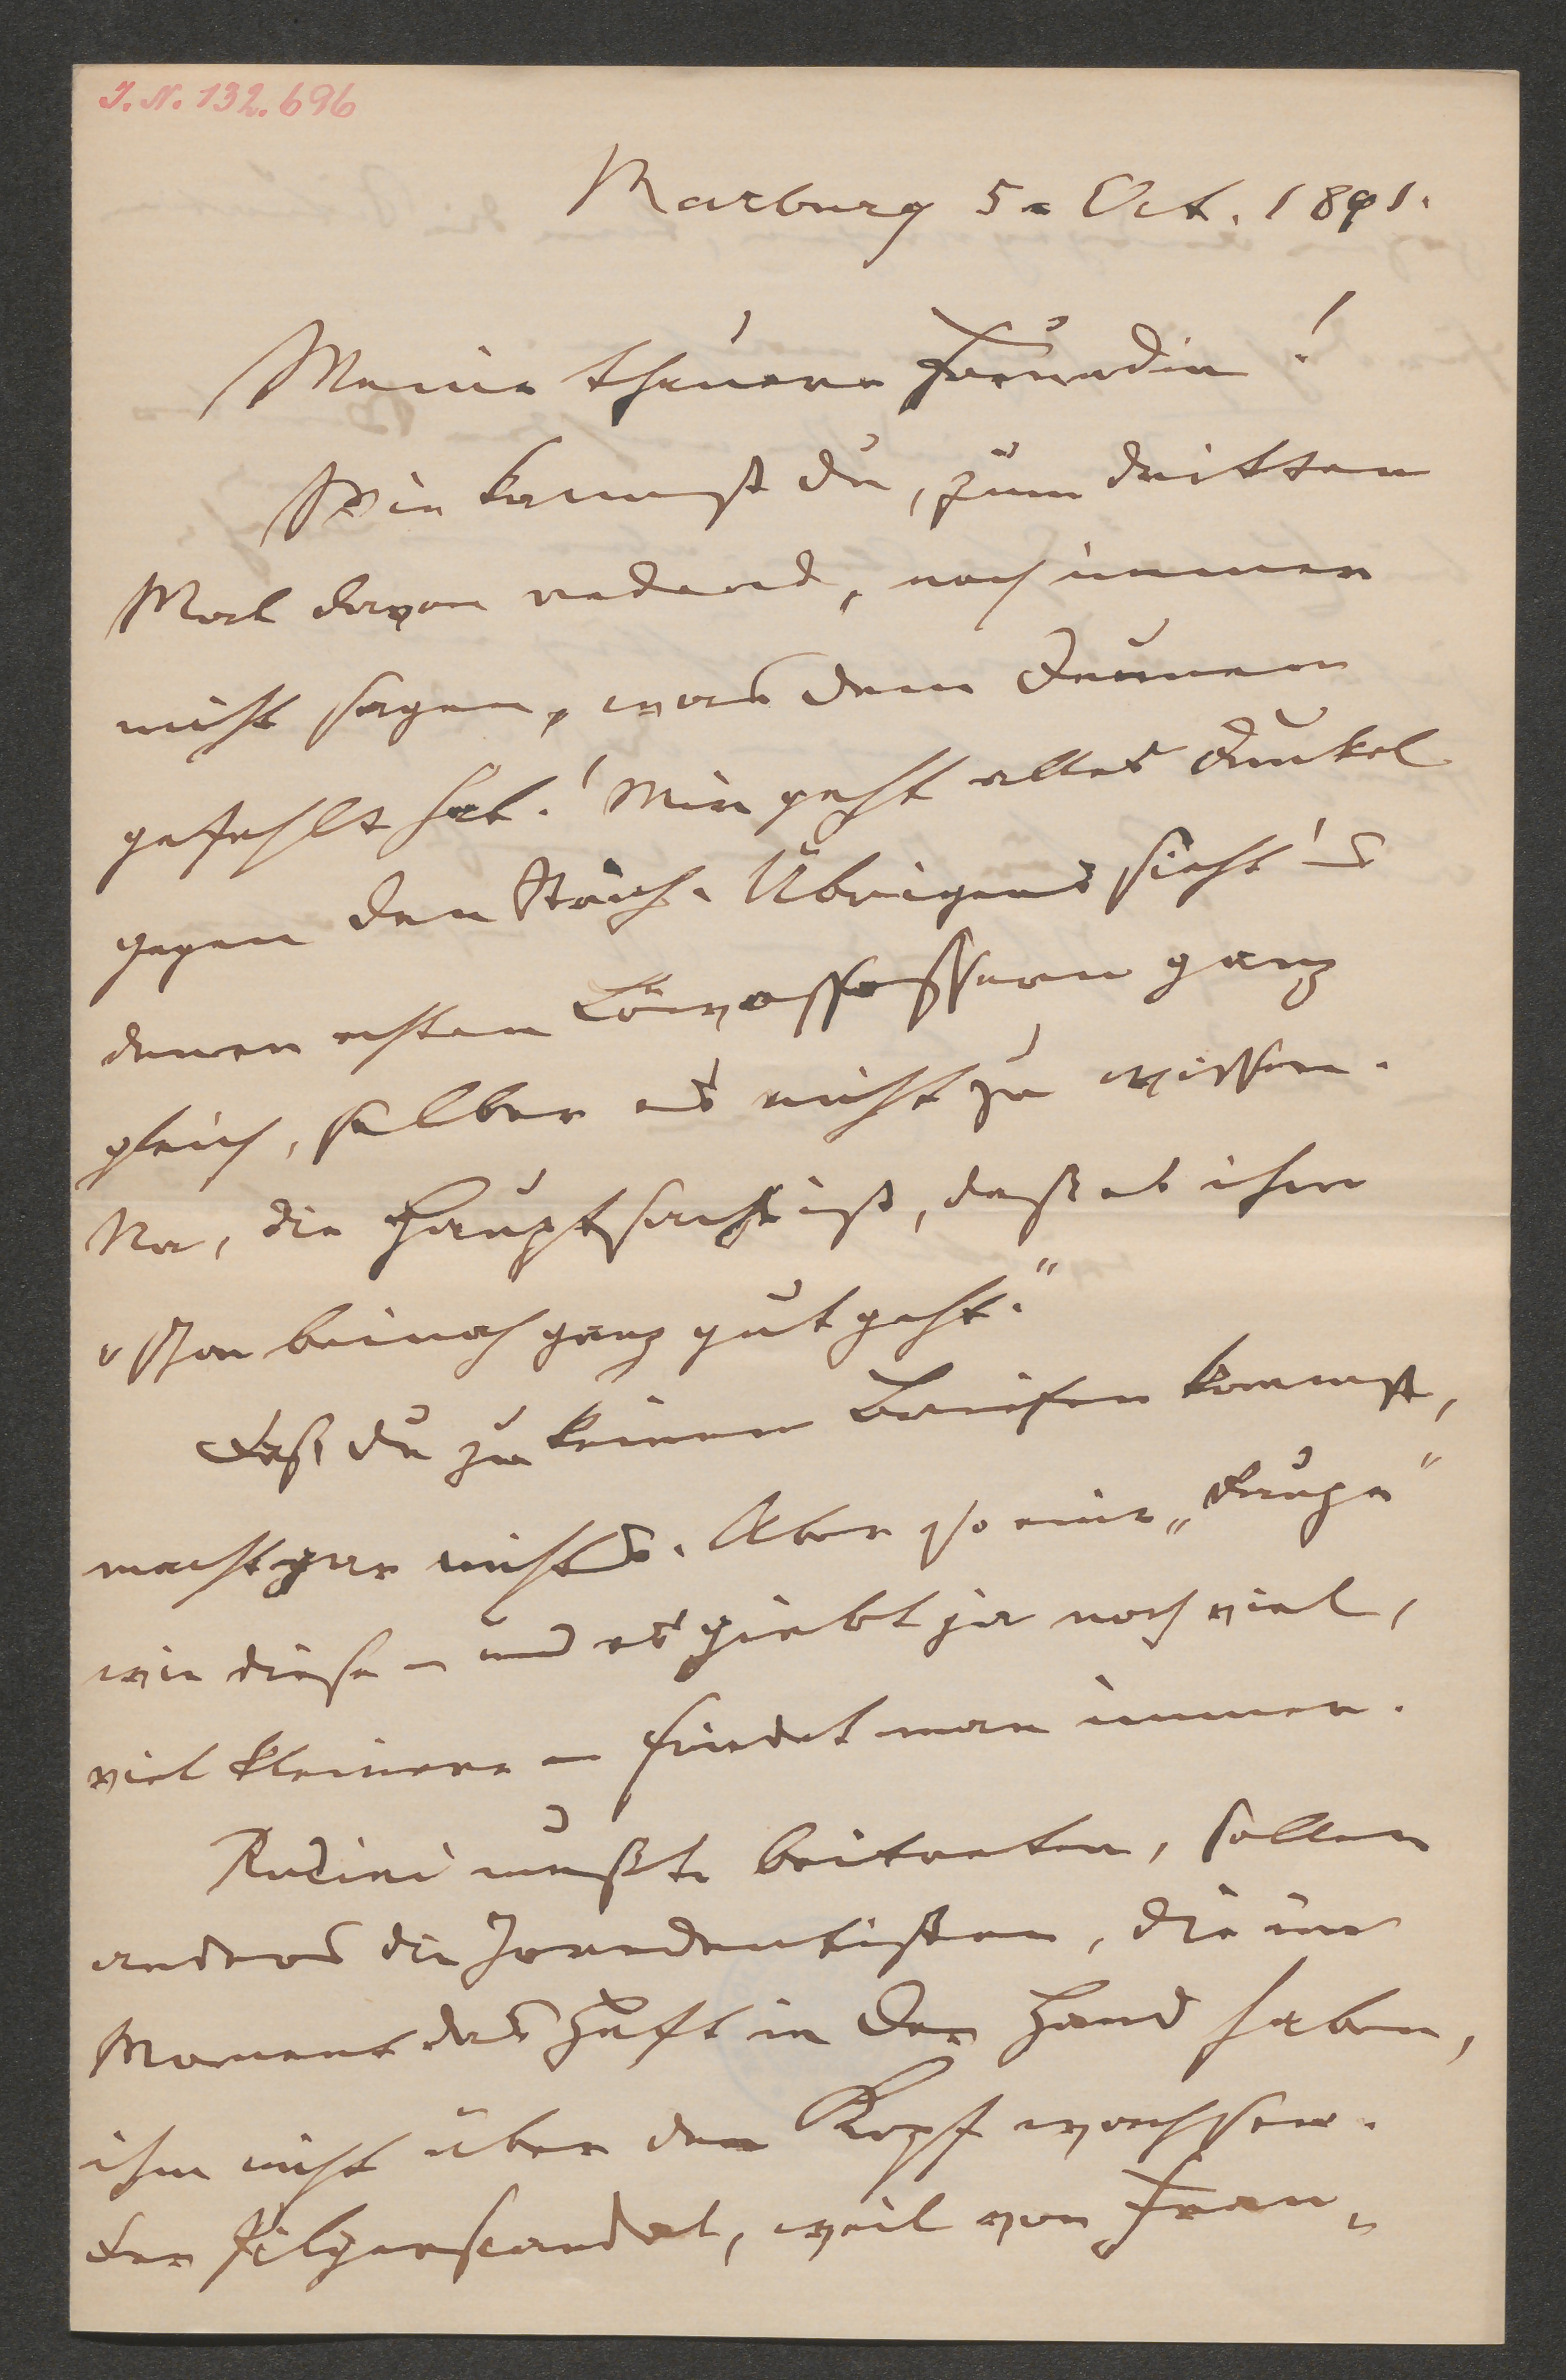 J. N. 132.696
Marburg 5. Oct. 1891.
Meine theuere Freundin!
Wie kannst du, zum dritten
Mal davon redend, noch immer
nicht sagen, was dem Deinen
gefehlt hat! Mir geht alles Dunkel
gegen den Strich. Übrigens sieht's
denen echten ganz
gleich, selber es nicht zu wissen.
Na, die Hauptsache ist, daß es ihm
„schon beinah ganz gut geht."
Daß du zu keinem Briefen kommst,
macht gar nichts. Aber so eine „Pause"
wie diese – und es giebt ja noch viel,
viel kleinere – findet man immer.
Rudini mußte beitreten, sollen
anders die Irredentisten, die im
Moment das Heft in der Hand haben,
ihm nicht über den Kopf wachsen.
Der Pilgerscandal, weil von Fran-